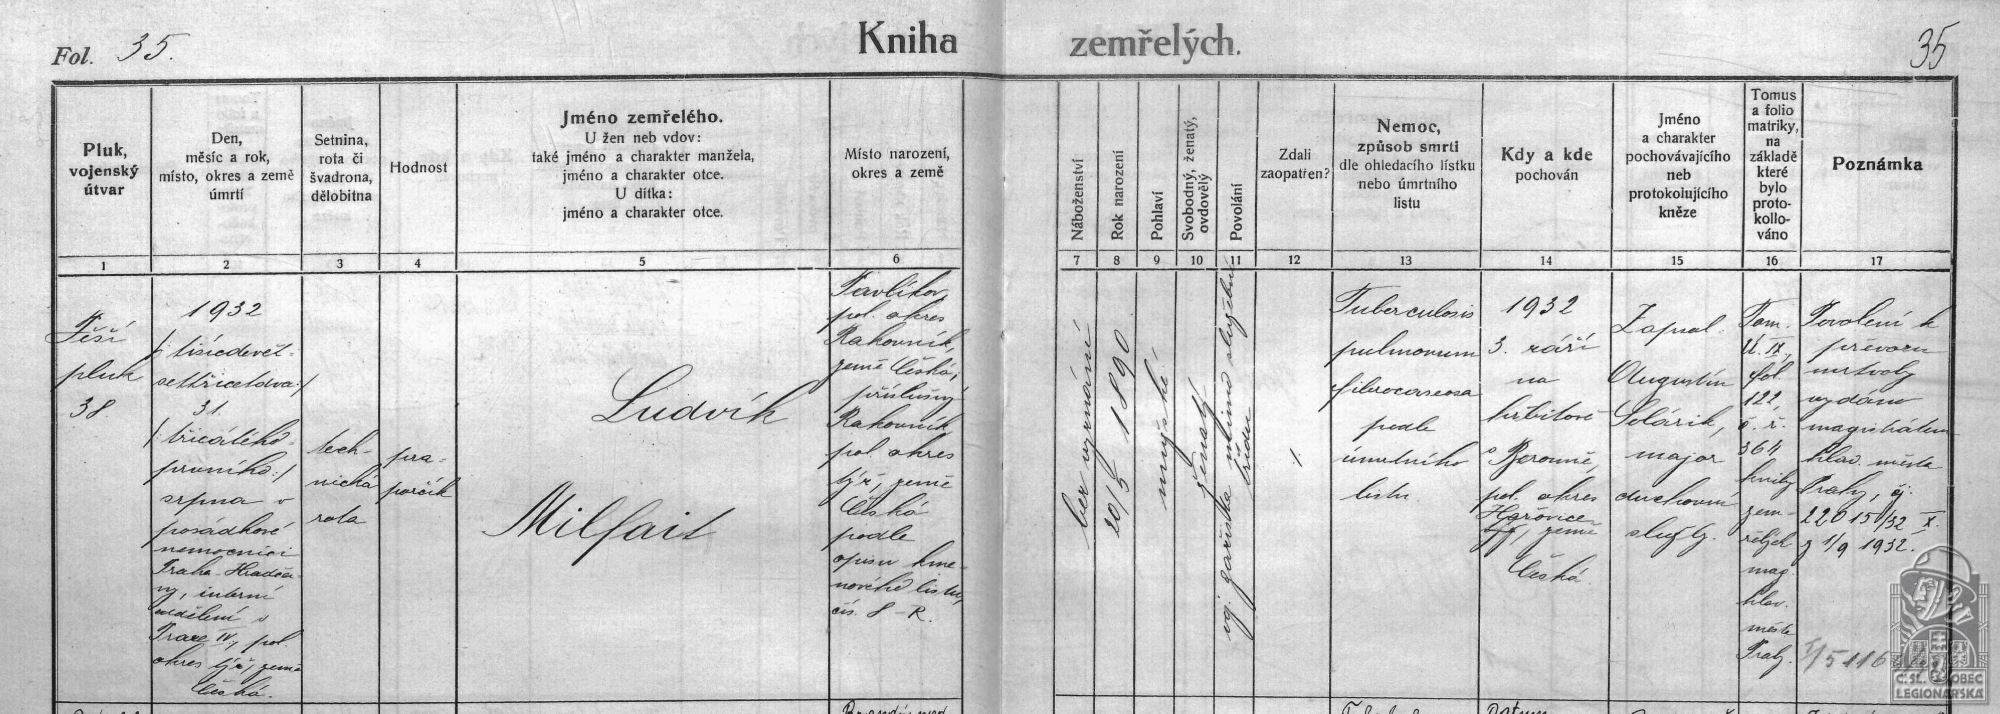 Fol. 35.
Kniha zemřelých.
35
Pluk,
vojenský
útvar
Den,
měsíc a rok,
místo, okres a země
úmrtí
Setnina,
rota či
švadrona,
dělobitna
Hodnost
Jméno zemřelého.
U žen neb vdov:
také jméno a charakter manžela,
jméno a charakter otce.
U dítka:
jméno a charakter otce.
Místo narození,
okres a země
Náboženství
Rok narození
Pohlaví
Svobodný, ženatý,
ovdovělý
Povolání
Zdali
zaopatřen?
Nemoc,
způsob smrti
dle ohledacího lístku
nebo úmrtního
listu
Kdy a kde
pochován
Jméno
a charakter
pochovávajícího
neb
protokolujícího
kněze
Tomus
a folio
matriky,
na
základě
které
bylo
proto-
kollo-
váno
Poznámka
1 2 3 4 5 6 7 8 9 10 11 12 13 14 15 16 17
Pěší
pluk
38
1932
/: tisícdevět-
settřicetdva :/
31.
/: třicátého-
prvního :/
srpna v
posádkové
nemocnici
Praha-Hradča-
ny, interní
oddělení v
Praze IV., pol.
okres týž, země
Česká.
tech-
nická
rota
pra-
porčík
Ludvík
Milfait
Pavlíkov,
pol. okres
Rakovník,
země Česká,
příslušný
Rakovník,
pol. okres
týž, země
Česká
podle
opisu kme-
nového listu,
čís. 8-R.
bez vyznání
20/5 1890
mužské
ženatý
voj. gažista mimo služební
třídu
Tuberculosis
pulmonum
fibrocaseosa
podle
úmrtního
listu.
1932
3. září
na
hřbitově
v Berouně,
pol. okres
Hořovice,
země
Česká.
Zapsal:
Augustín
Solárik,
major
duchovní
služby.
Tom.
II. IX.,
fol.
122,
č. ř.
364
knihy
zem-
řelých
mag.
hlav.
města
Prahy.
Povolení k
převozu
mrtvoly
vydáno
magistrátem
hlav. města
Prahy, čj.
22015/32 X.
z 1/9 1932.
Č. SL. OBEC
LEGIONÁŘSKÁ